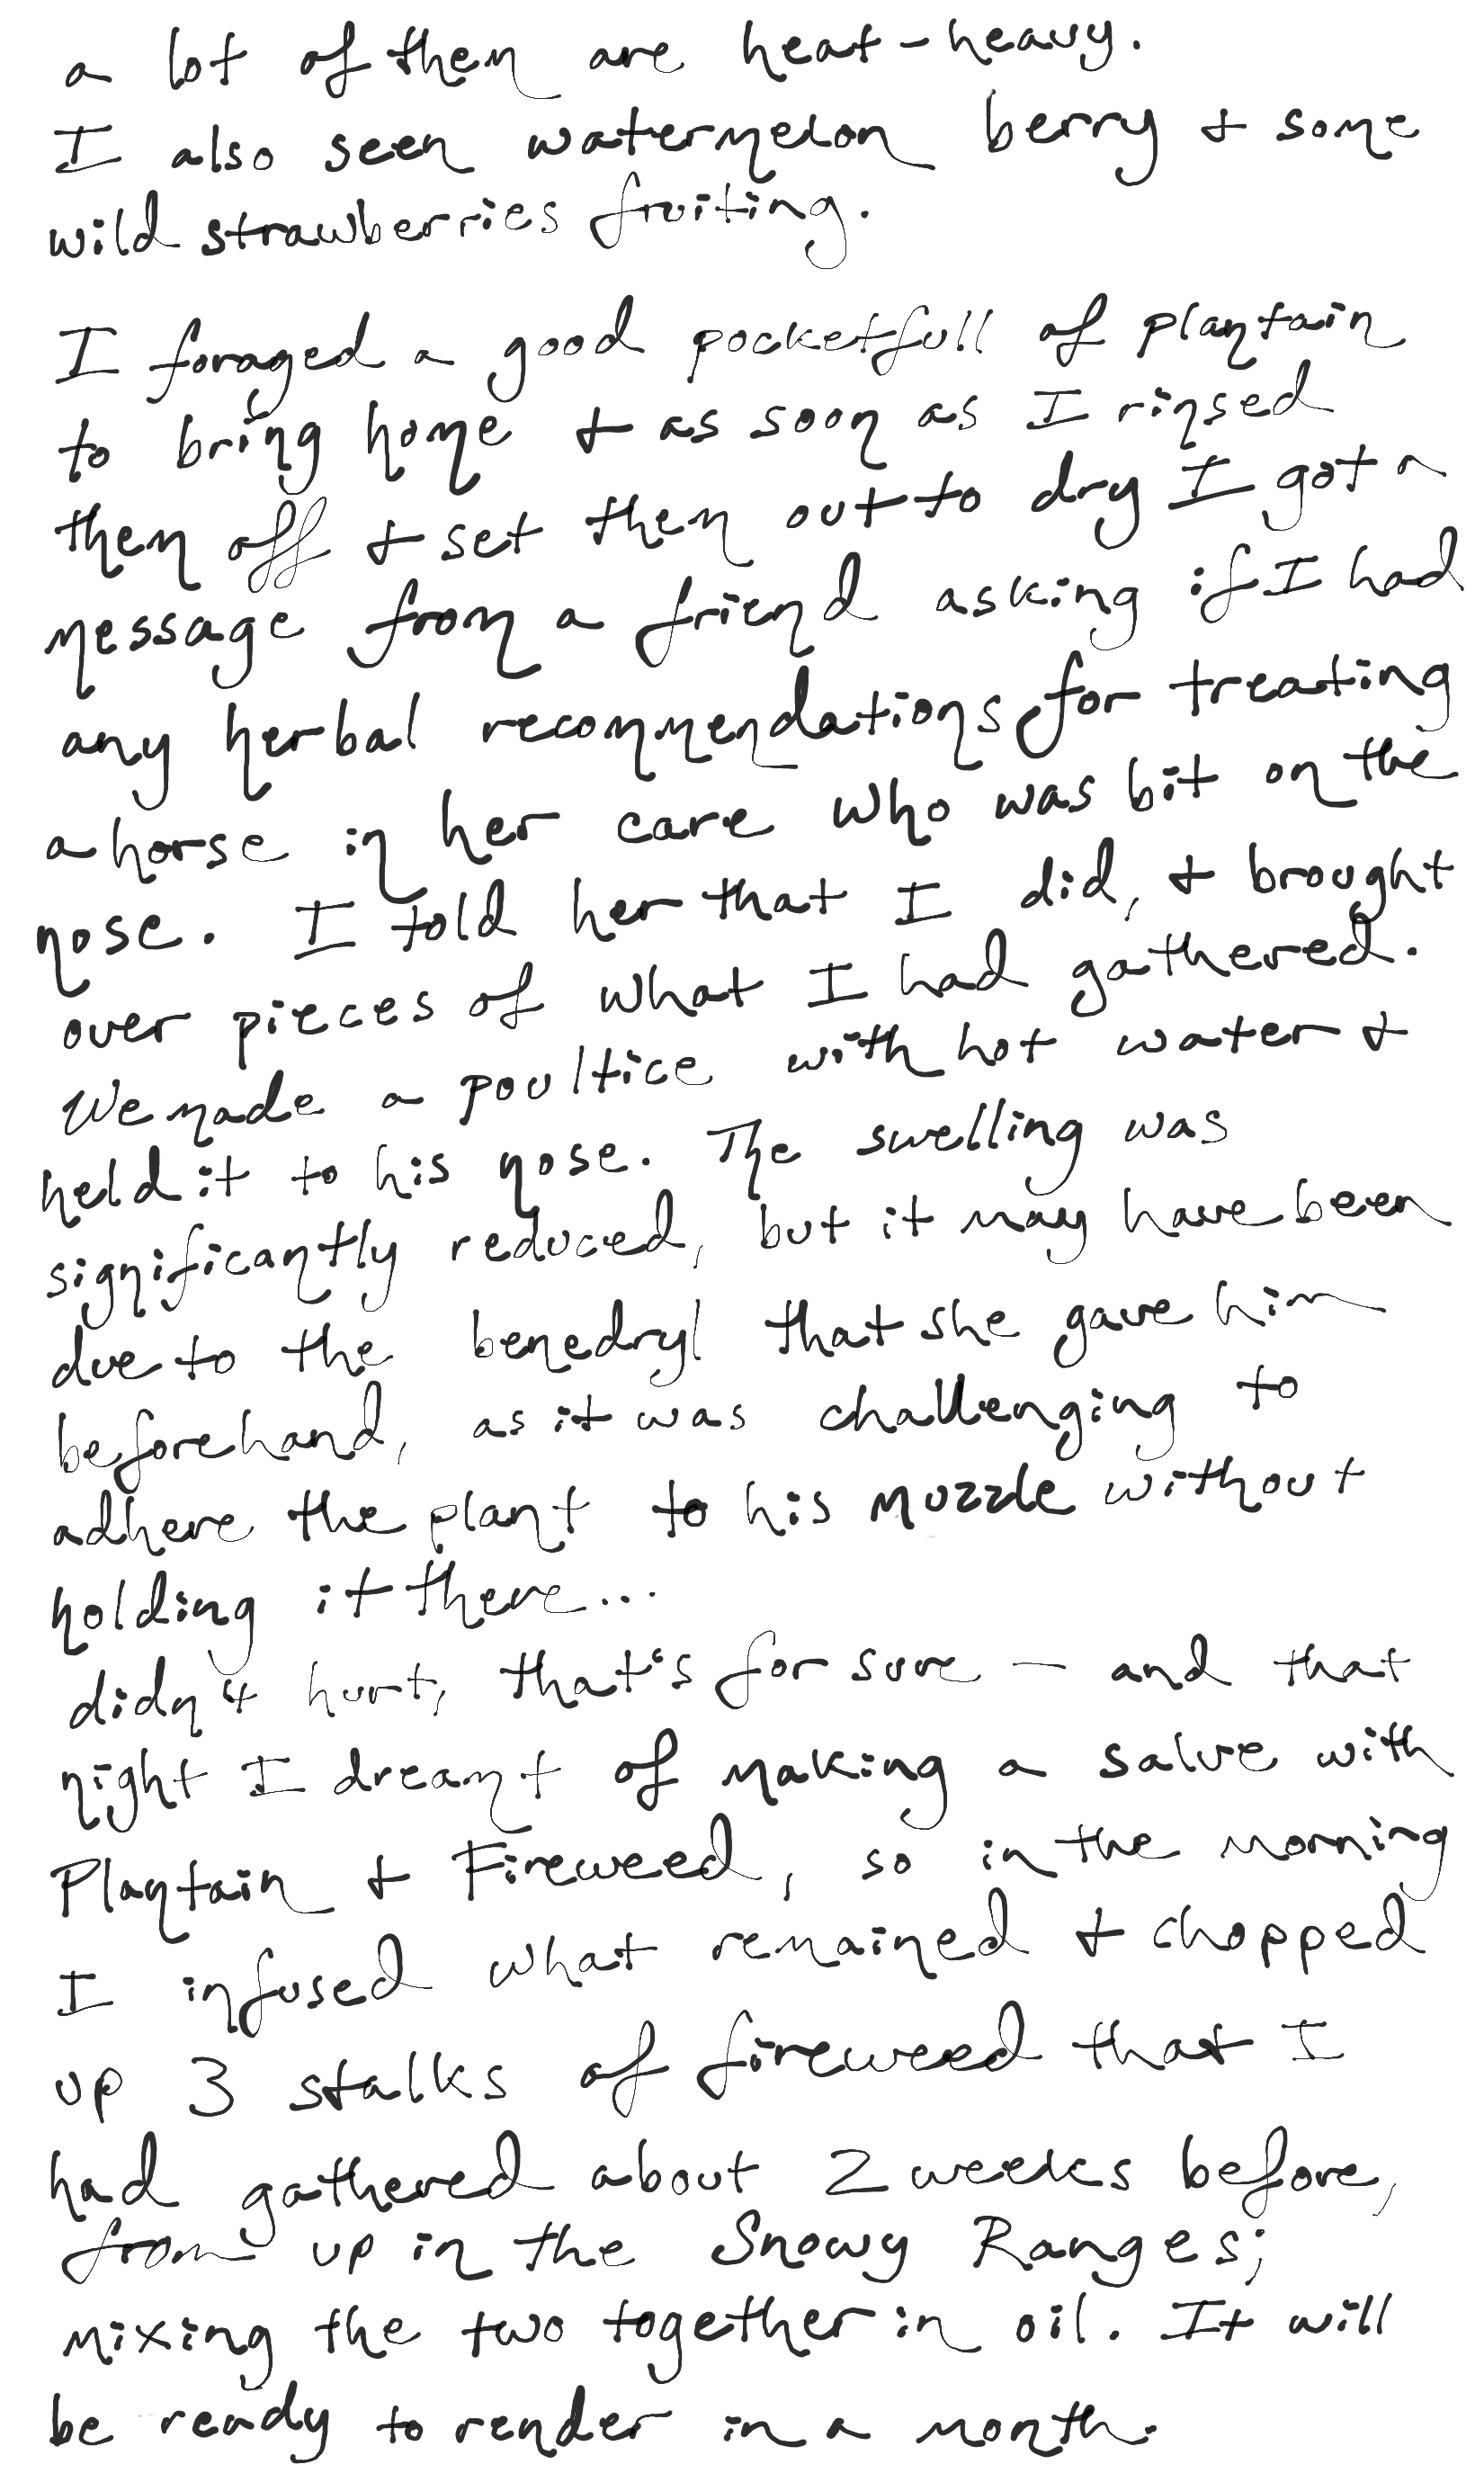 a lot of them are heat-heavy.
I also seen watermelon berry & some
wild strawberries fruiting.
I foraged a good pocketfull of plantain
to bring home & as soon as I rinsed
them off & set them out to dry I got a
message from a friend asking if I had
any herbal recommendations for treating
a horse in her care who was bit on the
nose. I told her that I did, & brought
over pieces of what I had gathered.
We made a poultice with hot water &
held it to his nose. The swelling was
significantly reduced, but it may have been
due to the benedryl that she gave him
beforehand, as it was challenging to
adhere the plant to his muzzle without
holding it there...
didn't hurt, that's for sure — and that
night I dreamt of making a salve with
Plantain & Fireweed, so in the morning
I infused what remained & chopped
up 3 stalks of fireweed that I
had gathered about 2 weeks before,
from up in the Snowy Ranges;
mixing the two together in oil. It will
be ready to render in a month.